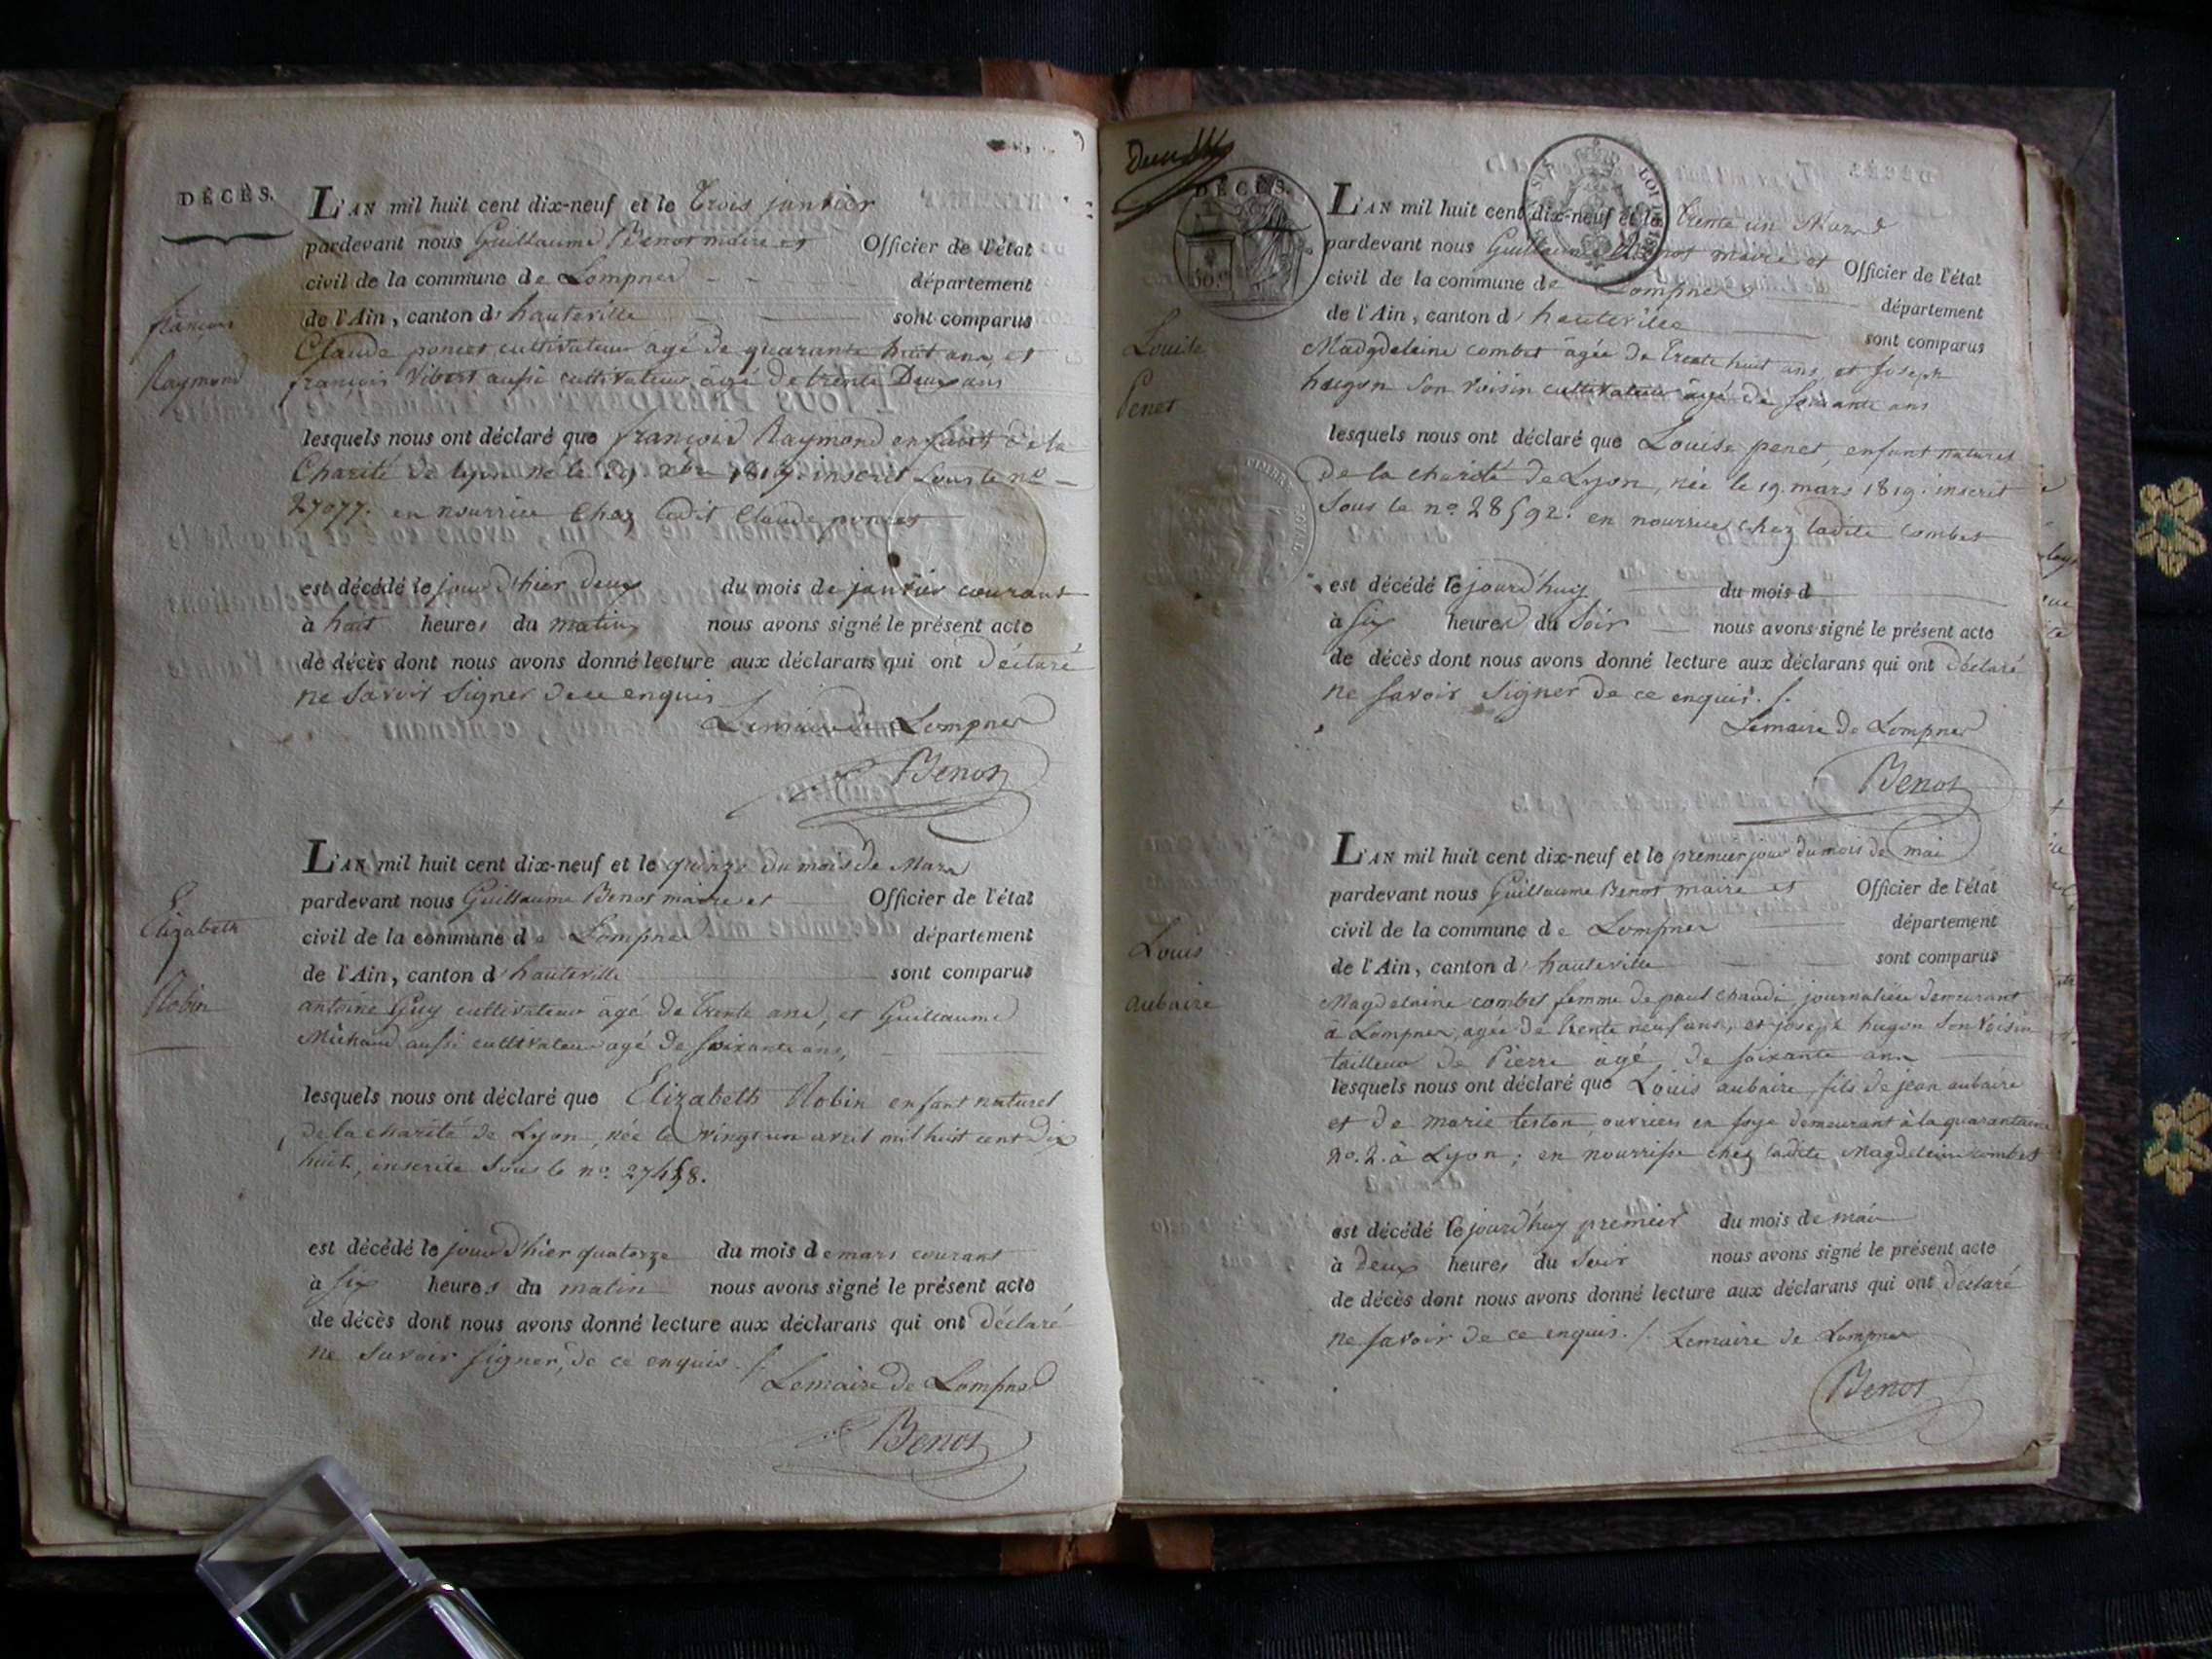 DÉCÈS.
L'AN mil huit cent dix-neuf et le trois janvier
pardevant nous Guillaume Benot maire et Officier de l'état
civil de la commune de Lompner département
de l'Ain, canton d'hauteville sont comparus
françois
Raymond
Claude poncet cultivateur agé de quarante huit ans, et
françois Vibert aussi cultivateur agé de trente Deux ans
lesquels nous ont déclaré que françois Raymond enfant de la
Charité de lyon né le 29 xbre 1817. inscrit sous le no
27077. en nourrice Chez ledit Claude poncet
est décédé le jour d'hier deux du mois de janvier courant
à huit heures du matin nous avons signé le présent acte
de décès dont nous avons donné lecture aux déclarans qui ont déclaré
ne savoir signer de ce enquis
Lemaire de Lompner
Benot
L'AN mil huit cent dix-neuf et le quinze du mois de Mars
pardevant nous Guillaume Benot maire et Officier de l'état
civil de la commune de Lompner département
de l'Ain, canton d'hauteville sont comparus
Elizabeth
Robin
antoine Guy cultivateur agé de trente ans, et Guillaume
Michaud aussi cultivateur agé de soixante ans,
lesquels nous ont déclaré que Elizabeth Robin enfant naturel
de la charité de Lyon, née le vingt un avril mil huit cent dix
huit, inscrite sous le no. 27458.
est décédé le jour d'hier quatorze du mois de mars courant
à six heures du matin nous avons signé le présent acte
de décès dont nous avons donné lecture aux déclarans qui ont déclaré
ne savoir signer, de ce enquis ./.
Lemaire de Lompner
Benot
DÉCÈS.
L'AN mil huit cent dix-neuf et le trente un Mars
pardevant nous Guillaume Benot maire et Officier de l'état
civil de la commune de Lompner département
de l'Ain, canton d'hauteville sont comparus
Louise
Penet
Madgdelaine combet agée de trente huit ans, et joseph
hugon son voisin cultivateur agé de soixante ans
lesquels nous ont déclaré que Louise penet, enfant naturel
de la charité de Lyon, née le 19. mars 1819. inscrit
sous le no. 28592. en nourrice chez ladite combet
est décédé le jourd'huy du mois d
à six heures du soir nous avons signé le présent acte
de décès dont nous avons donné lecture aux déclarans qui ont déclaré
ne savoir signer de ce enquis. /.
Lemaire de Lompner
Benot
L'AN mil huit cent dix-neuf et le premier jour du mois de mai
pardevant nous Guillaume Benot maire et Officier de l'état
civil de la commune de Lompner département
de l'Ain, canton d'hauteville sont comparus
Louis
aubaire
Magdelaine combet femme de paul chaudi, journaliere demeurant
à Lompner, agée de trente neuf ans, et joseph hugon son voisin
tailleur de Pierre agé de soixante ans
lesquels nous ont déclaré que Louis aubaire, fils de jean aubaire
et de marie teston, ouvriers en soye demeurant à la quarantaine
no. 2. à Lyon; en nourrisse chez ladite Magdelaine combet
est décédé le jourd'huy premier du mois de mai
à deux heures du soir nous avons signé le présent acte
de décès dont nous avons donné lecture aux déclarans qui ont déclaré
ne savoir de ce enquis. /. Lemaire de Lompner
Benot